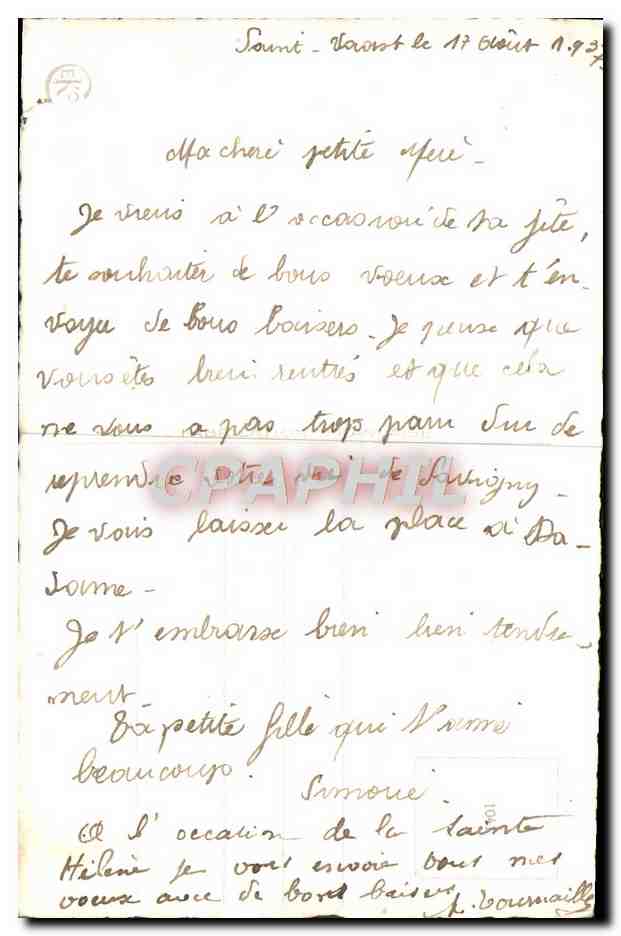 Saint-Vaast le 17 Août 1.937
Ma cheré petité Meré -
Je viens à l'occasion de ta fête,
te souhaiter de bons voeux et t'en-
voyer de bons baisers. Je pense que
vous êtes bien rentrés et que cela
ne vous a pas trop paru dur de
reprendre votre de Savigny -
Je vais laisser la place à Da-
Je t'embrasse bien bien tendre-
ment
Ta petité fille qui t'aime
beaucoup.
Simone.
A l'occasion de la Sainte
Hélène je vous envoie tous mes
voeux avec de bons baisers
CPAPHIL
104